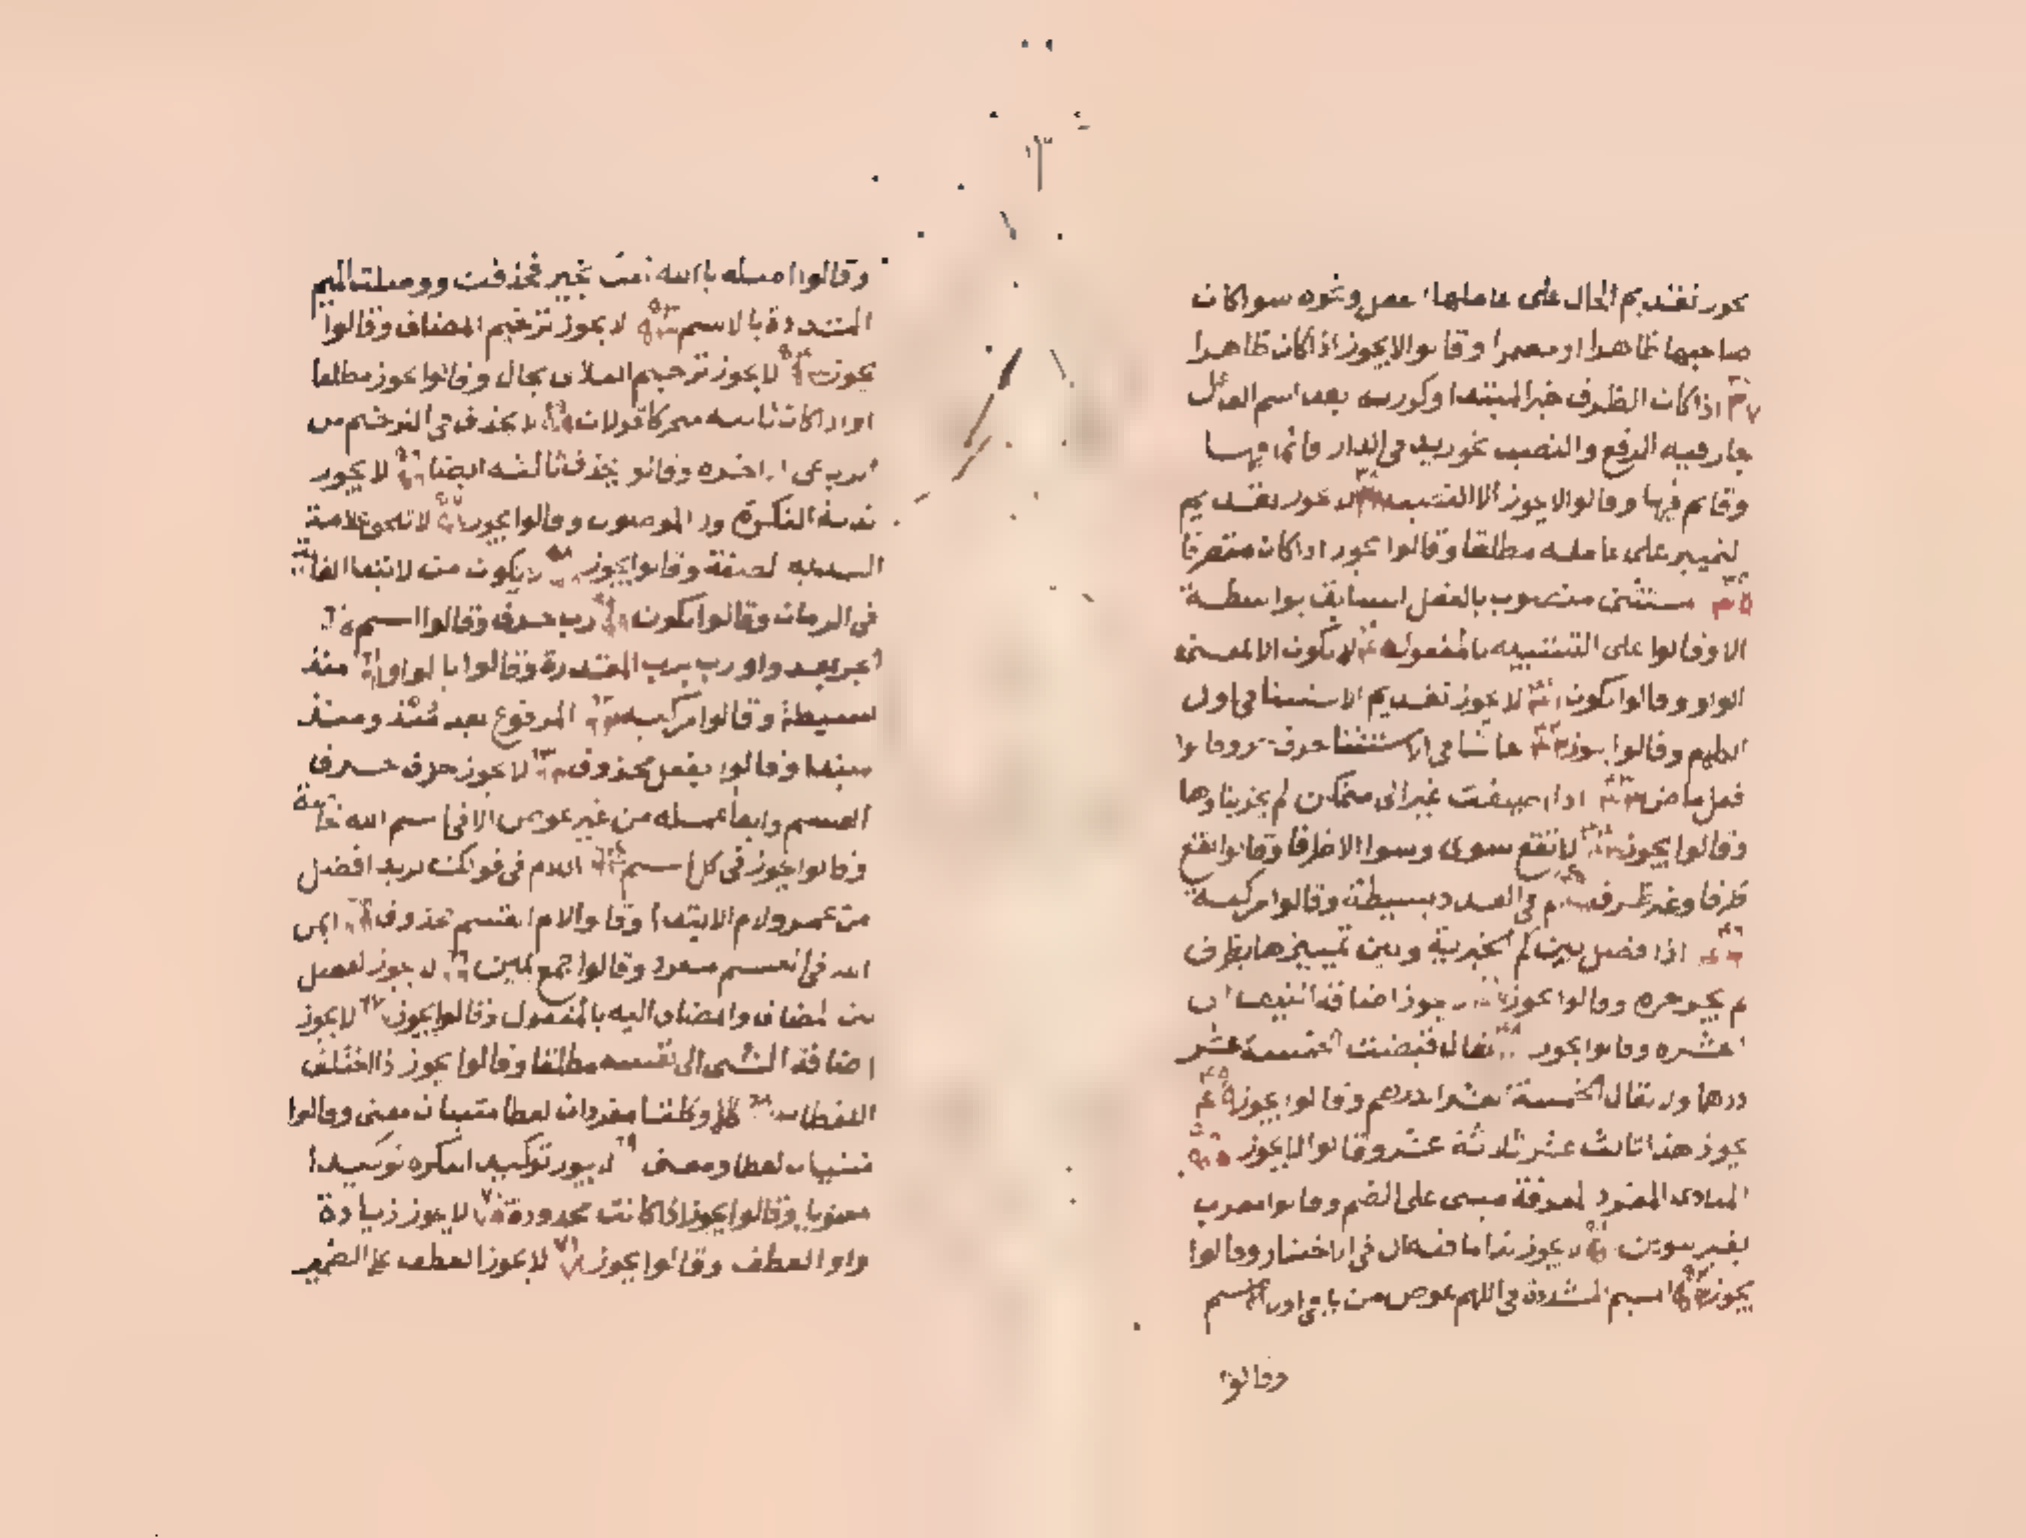 يجوز تقديم الحال على عاملها الفعل ونحوه سوا كان
صاحبها ظاهرا او مضمرا وقالوا لا يجوز اذا كان ظاهرا
٣٧ اذا كان الظرف خبر المبتدا وكررته بعد اسم الفاعل
جاز فيه الرفع والنصب نحو زيد في الدار قائما فيها
وقائم فيها وقالوا لا يجوز الا النصب ٣٨ لا يجوز تقديم
التمييز على عامله مطلقا وقالوا يجوز اذا كان متصرفا
٣٩ المستثنى منصوب بالفعل السابق بواسطة
الا وقالوا على التشبيه بالمفعول ٤٠ لا يكون الا بمعنى
الواو وقالوا يكون ٤١ لا يجوز تقديم الاستثنا في اول
الكلام وقالوا يجوز ٤٢ حاشا في الاستثنا حرف جر وقالوا
فعل ماض ٤٣ اذا اضيفت غير الى متمكن لم يجز بناوها
وقالوا يجوز ٤٤ لا تقع سوى وسوا الا ظرفا وقالوا تقع
ظرفا وغير ظرف ٤٥ كم في العدد بسيطة وقالوا مركبة
٤٦ اذا فصل بين كم الخبرية وبين تمييزها بظرف
لم يجز جره وقالوا يجوز ٤٧ لا يجوز اضافة النيف الى
العشرة وقالوا يجوز ٤٨ يقال قبضت الخمسة عشر
درهما ولا يقال الخمسة العشر الدرهم وقالوا يجوز ٤٩
يجوز هذا ثالث عشر ثلاثة عشر وقالوا لا يجوز ٥٠
المنادى المفرد المعرفة مبني على الضم وقالوا معرب
بغير تنوين ٥١ لا يجوز ندا ما فيه ال في الاختيار وقالوا
يجوز ٥٢ الميم المشددة في اللهم عوض من يا في اول الاسم
وقالوا
وقالوا اصله يا الله امنا بخير فحذفت ووصلت الميم
المشددة بالاسم ٥٣ لا يجوز ترخيم المضاف وقالوا
يجوز ٥٤ لا يجوز ترخيم الثلاثي بحال وقالوا يجوز مطلقا
او اذا كان ثانيه متحركا قولان ٥٥ لا يحذف في الترخيم من
الرباعي الا اخره وقالوا يحذف ثالثه ايضا ٥٦ لا يجوز
ندبة النكرة ولا الموصول وقالوا يجوز ٥٧ لا تلحق علامة
الندبة الصفة وقالوا يجوز ٥٨ لا يكون من لابتدا الغاية
في الزمان وقالوا يكون ٥٩ رب حرف وقالوا اسم ٦٠
الجر بعد واو رب برب المقدرة وقالوا بالواو ٦١ منذ
بسيطة وقالوا مركبة ٦٢ المرفوع بعد مذ ومنذ
مبتدا وقالوا بفعل محذوف ٦٣ لا يجوز حذف حرف
القسم وابقا عمله من غير عوض الا في اسم الله خاصة
وقالوا يجوز في كل اسم ٦٤ اللام في قولك لزيد افضل
من عمرو لام الابتدا وقالوا لام القسم محذوف ٦٥ ايمن
الله في القسم مفرد وقالوا جمع يمين ٦٦ لا يجوز الفصل
بين المضاف والمضاف اليه بالمفعول وقالوا يجوز ٦٧ لا يجوز
اضافة الشي الى نفسه مطلقا وقالوا يجوز اذا اختلف
اللفظان ٦٨ كلا وكلتا مفردان لفظا مثنيان معنى وقالوا
مثنيان لفظا ومعنى ٦٩ لا يجوز توكيد النكرة توكيدا
معنويا وقالوا يجوز اذا كانت محدودة ٧٠ لا يجوز زيادة
واو العطف وقالوا يجوز ٧١ لا يجوز العطف على الضمير